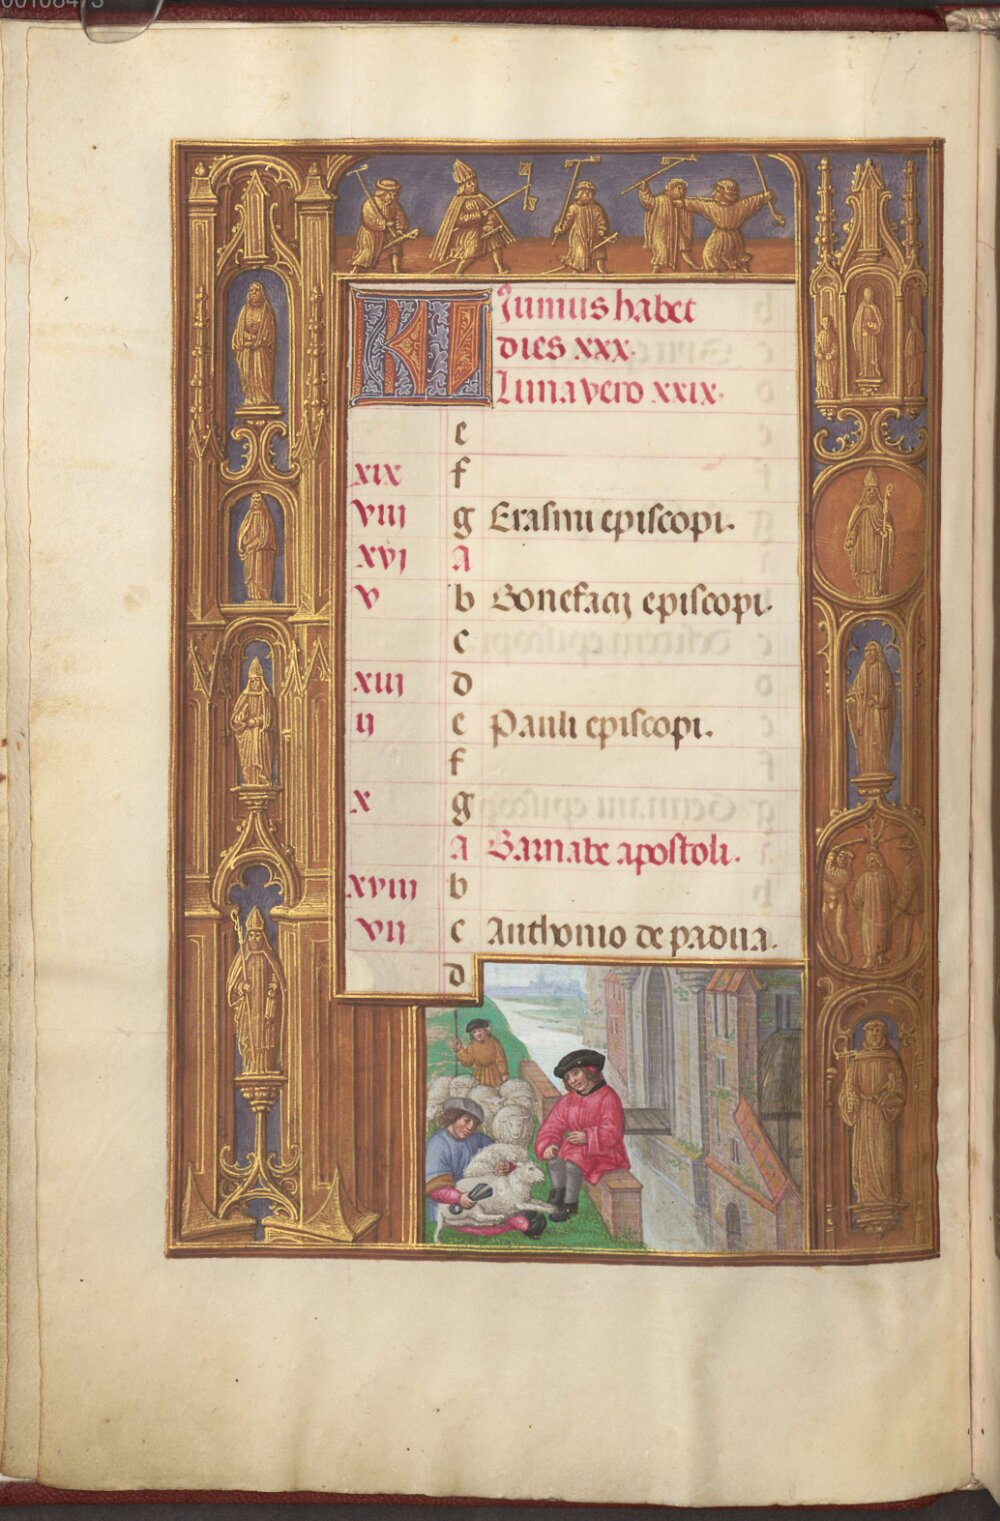 00108473
Kl Junius habet
dies xxx.
Luna vero xxix.
e
xix f
viii g Erasmi episcopi.
xvj A
v b Bonefacij episcopi.
c
xiij d
ij e Pauli episcopi.
f
x g
A Barnabe apostoli.
xviii b
vij c Anthonio de padua.
d